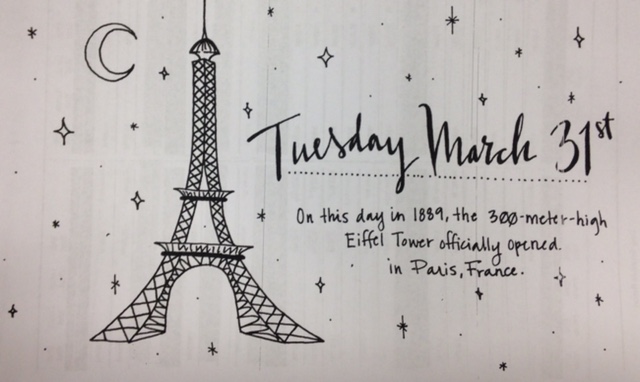 Tuesday March 31st
On this day in 1889, the 300-meter-high
Eiffel Tower officially opened.
in Paris, France.